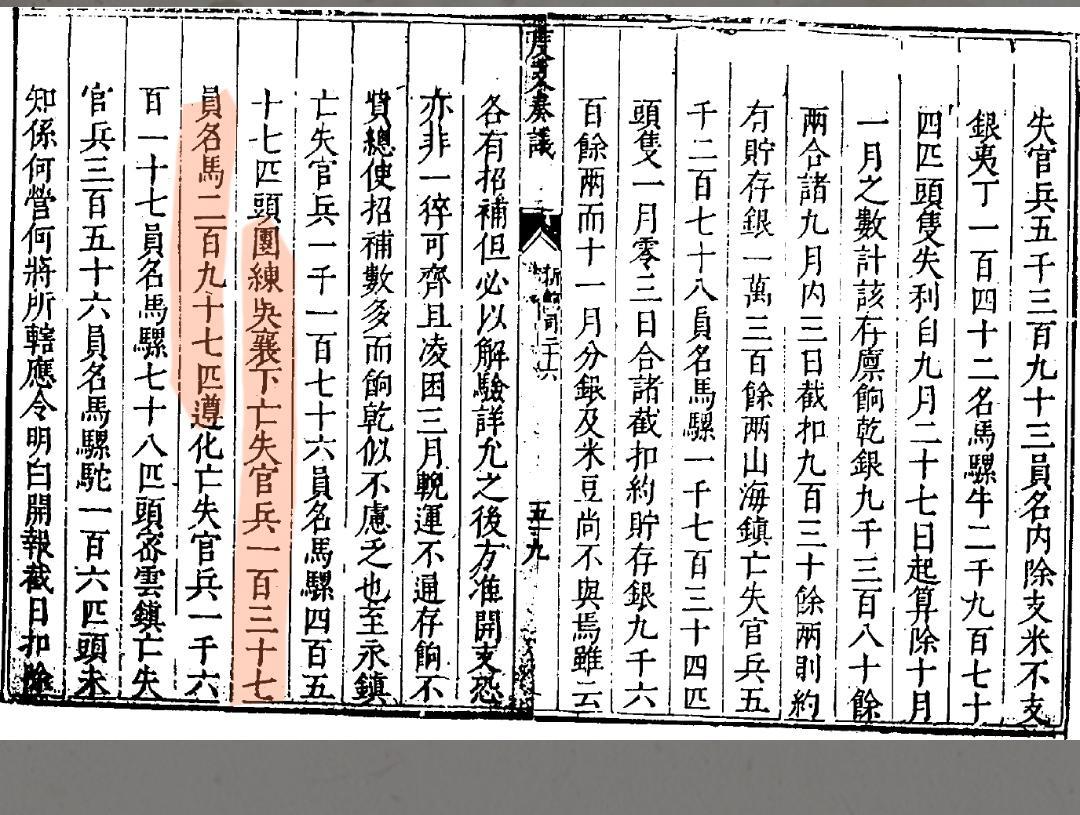 失官兵五千三百九十三員名内除支米不支
銀夷丁一百四十二名馬騾牛二千九百七十
四匹頭隻失利自九月二十七日起算除十月
一月之數計該存廪餉乾銀九千三百八十餘
兩合諸九月内三日截扣九百三十餘兩則約
有貯存銀一萬三百餘兩山海鎮亡失官兵五
千二百七十八員名馬騾一千七百三十四匹
頭隻一月零三日合諸截扣約貯存銀九千六
百餘兩而十一月分銀及米豆尚不與焉雖云
度支奏議
五十九
各有招補但必以解驗詳允之後方准開支恐
亦非一猝可齊且凌困三月輓運不通存餉不
貲總使招補數多而餉乾似不慮乏也至永鎮
亡失官兵一千一百七十六員名馬騾四百五
十七匹頭團練吳襄下亡失官兵一百三十七
員名馬二百九十七匹遵化亡失官兵一千六
百一十七員名馬騾七十八匹頭密雲鎮亡失
官兵三百五十六員名馬騾駝一百六匹頭未
知係何營何將所轄應令明白開報截日扣除